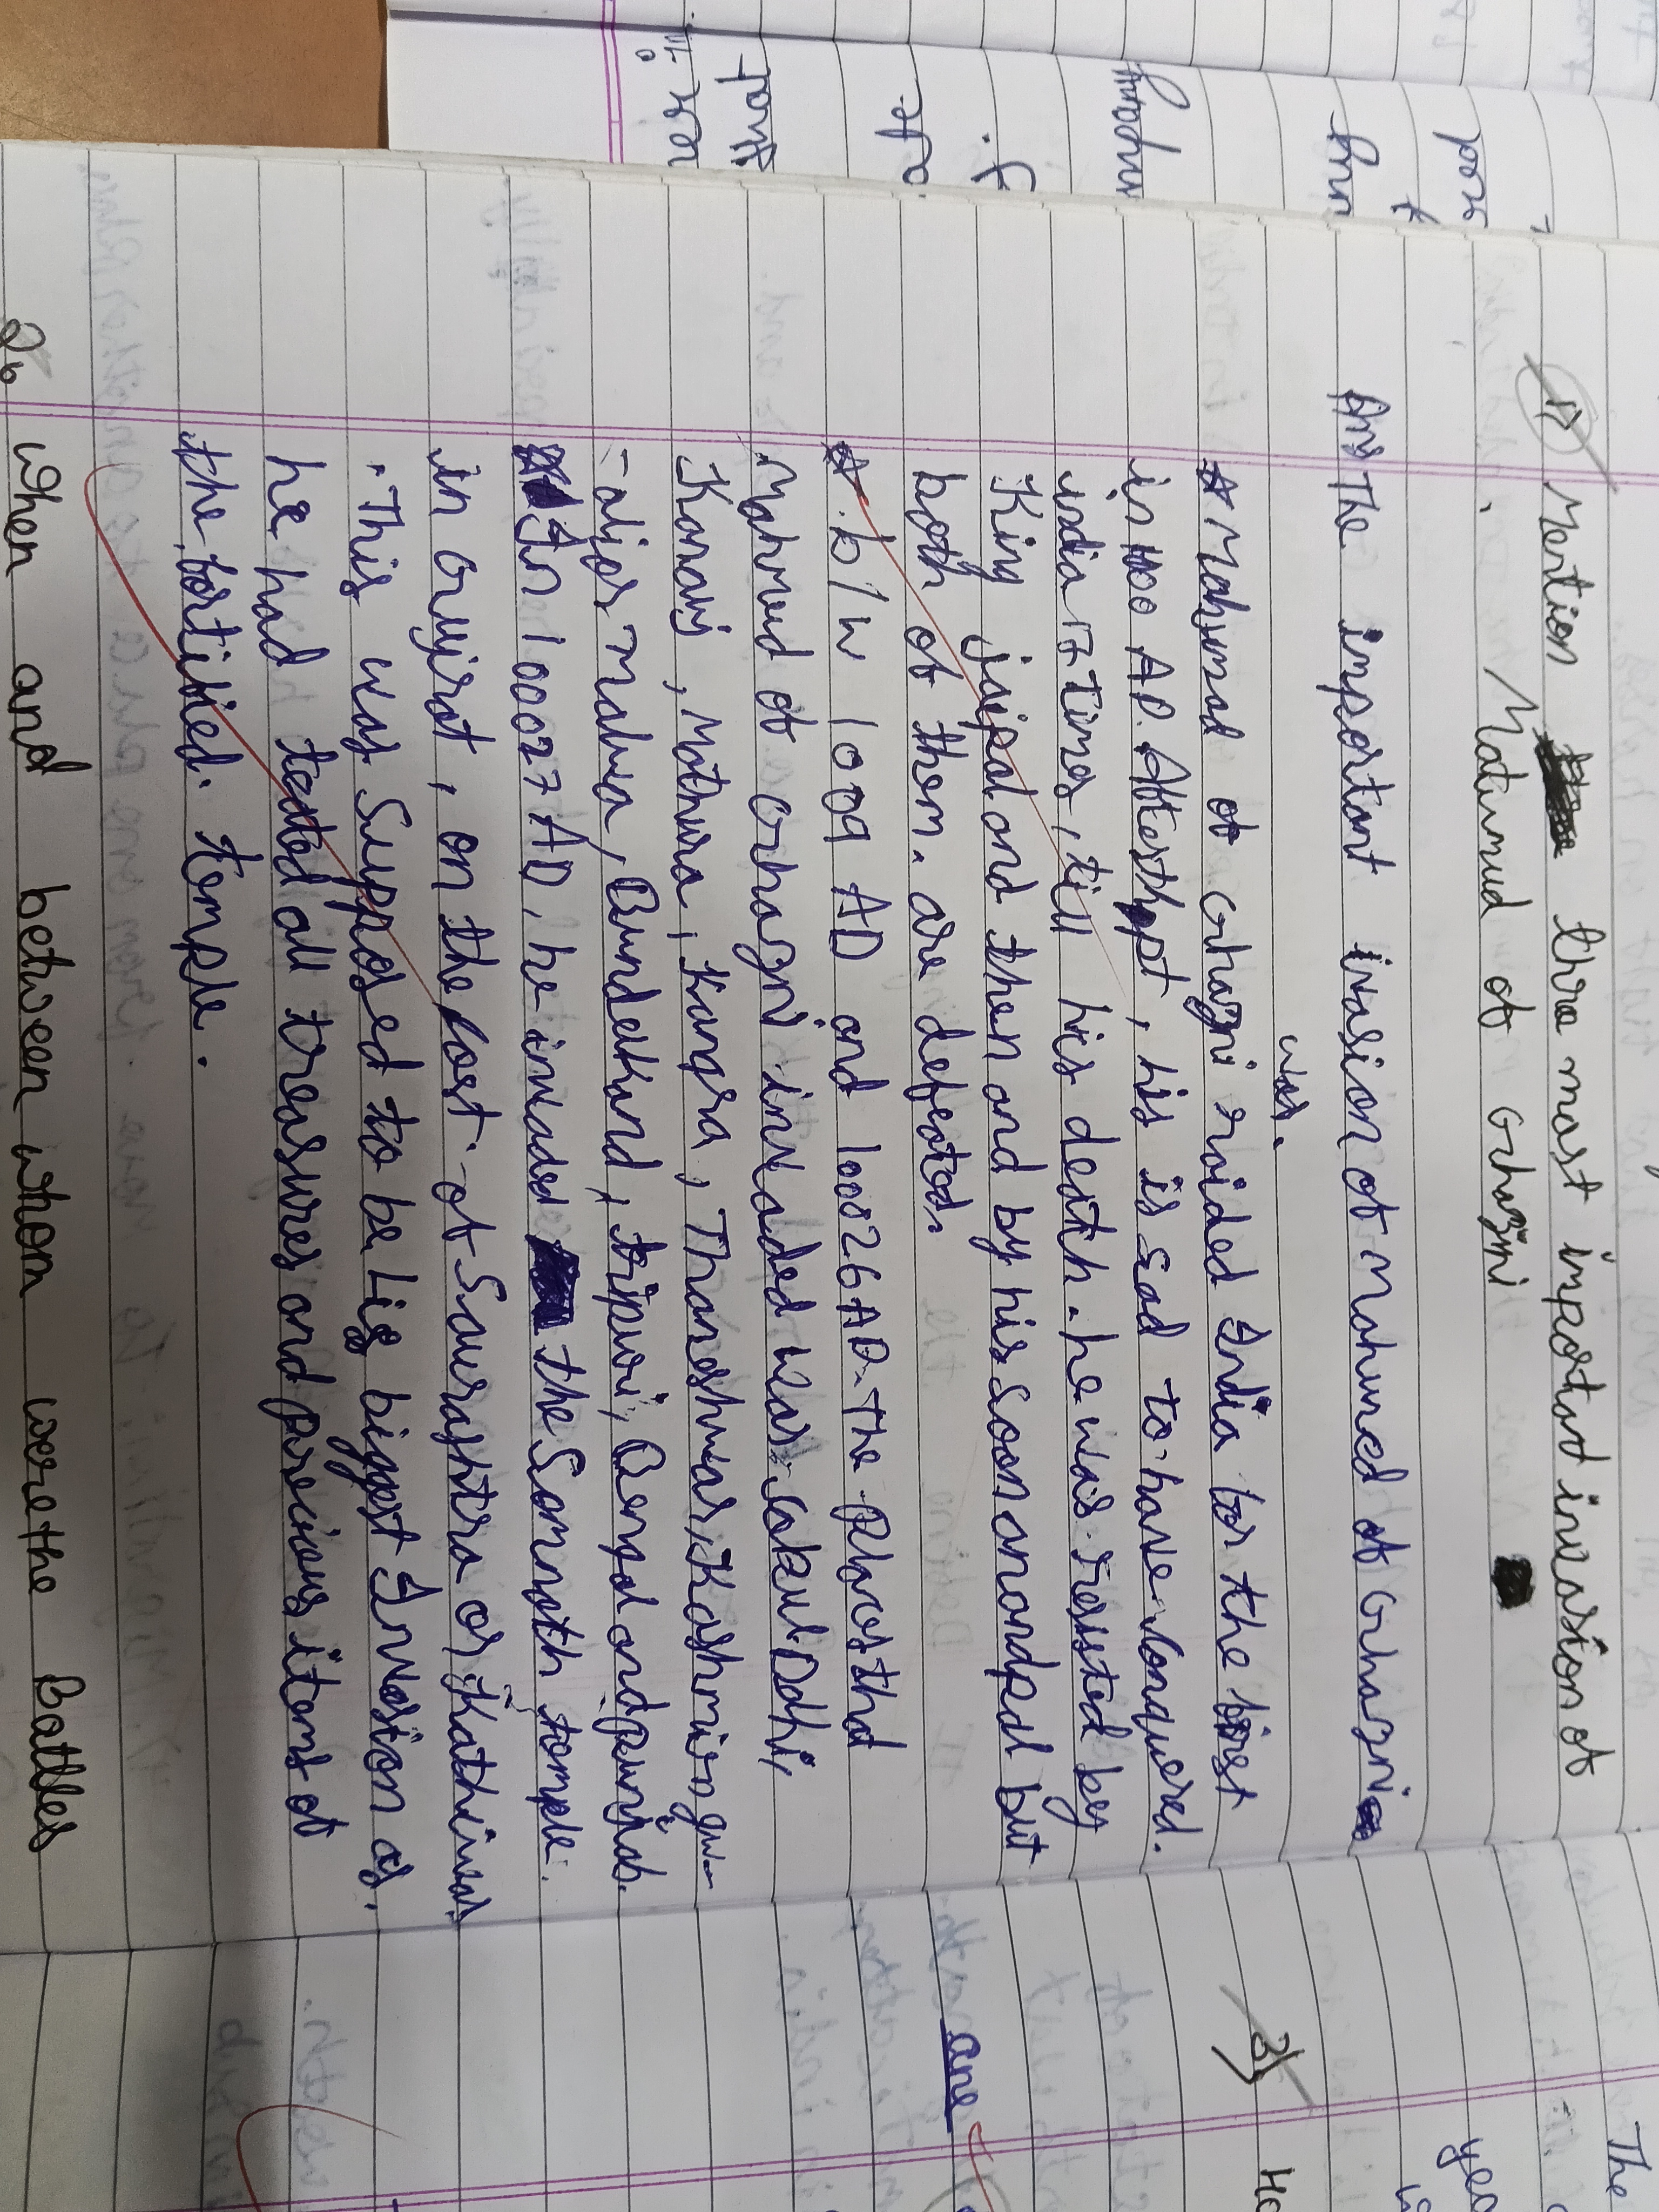 1) Mention three most important invasion of
Matimud of Ghazni
Ans The important invasion of Mahmed of Ghazni
was.
☆ Mahmud of Ghazni raided India for the first
in 1100 AD. Attesthpt, his is sad to have conquered.
india 17 Times, till his death. he was ressted by
King jaipal and then and by his soon anandpal but
both of them. are defeated.
☆ . b/w 1009 AD and 10026 AD. The
Mahmud of Ghazni invaded was
Kanauj, Mathura, Kangra, Thaneshwar, Kashmir, gw-
-alior malwa, Bundelkand, tripuri, Bengal and punjab.
☆ In 10027 AD, he invaded the Somnath temple.
in Gujrat, on the cost. of Saurashtra or Kathiwar
. This was Supposed to be his biggest Invasion as.
he had tooted all treasures and precious items of
the fortified. temple.
2. When and between whom were the Battles
3)
one
The
yea
Ho